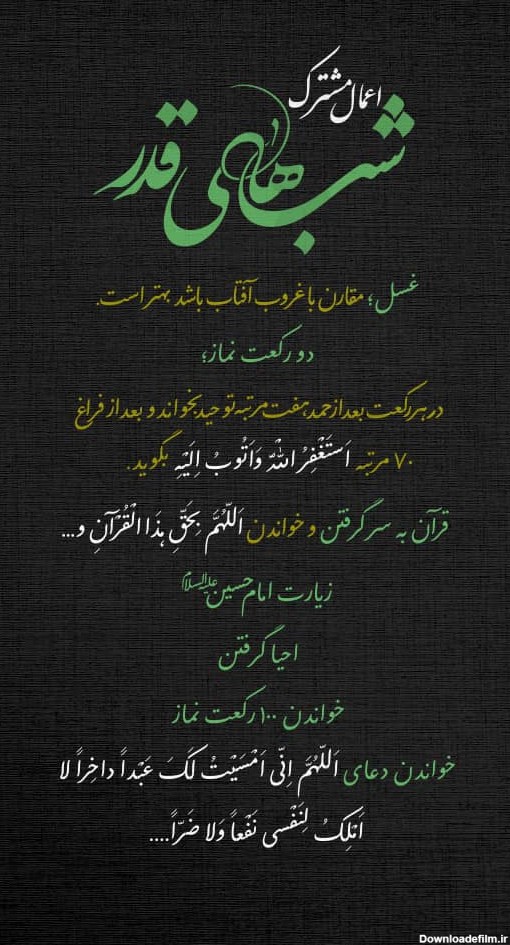 اعمال مشترک
شب‌های قدر
غسل؛ مقارن با غروب آفتاب باشد بهتر است.
دو رکعت نماز؛
در هر رکعت بعد از حمد هفت مرتبه توحید بخواند و بعد از فراغ
۷۰ مرتبه اَستَغْفِرُ اللهَ وَاَتُوبُ اِلَیْهِ بگوید.
قرآن به سر گرفتن و خواندن اَللّهُمَّ بِحَقِّ هذَا الْقُرْآنِ و...
زیارت امام حسین علیه السلام
احیا گرفتن
خواندن ۱۰۰ رکعت نماز
خواندن دعای اَللّهُمَّ اِنّی اَمْسَیْتُ لَکَ عَبْداً داخِراً لا
اَمْلِکُ لِنَفْسی نَفْعاً وَلا ضَرّاً....
Downloadefilm.ir